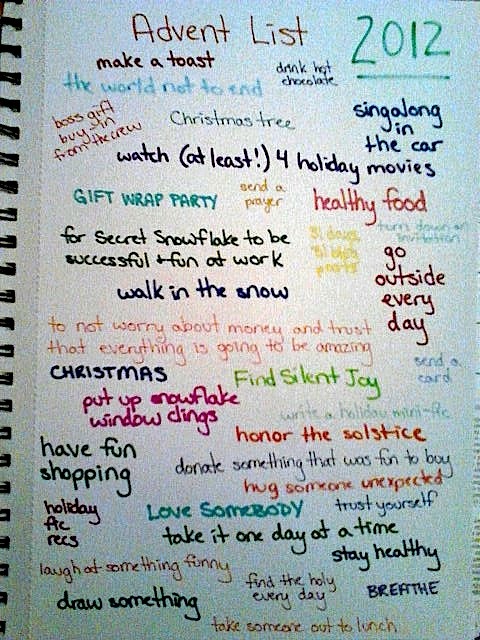 Advent List 2012
make a toast
drink hot
chocolate
the world not to end
boss gift
buy-in
from the crew
Christmas tree
singalong
in
the car
watch (at least!) 4 holiday movies
GIFT WRAP PARTY
send a
prayer
healthy food
turn down an
invitation
for Secret Snowflake to be
successful + fun at work
31 days
31 blog
posts
go
outside
every
day
walk in the snow
to not worry about money and trust
that everything is going to be amazing
send a
card
CHRISTMAS
Find Silent Joy
put up snowflake
window clings
write a holiday mini-fic
honor the solstice
have fun
shopping
donate something that was fun to buy
hug someone unexpected
holiday
fic
recs
LOVE SOMEBODY
trust yourself
take it one day at a time
stay healthy
laugh at something funny
find the holy
every day
BREATHE
draw something
take someone out to lunch